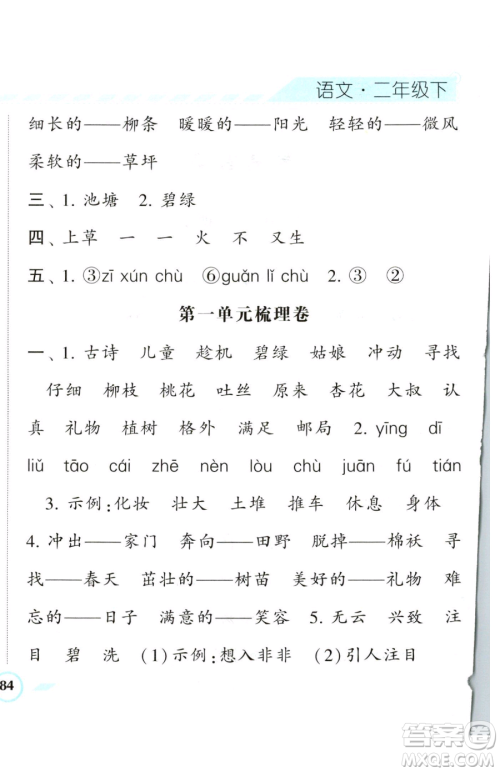 语文·二年级下
细长的——柳条 暖暖的——阳光 轻轻的——微风
柔软的——草坪
三、1. 池塘 2. 碧绿
四、上草 一 一 火 不 又生
五、1. ③zī xún chù ⑥guǎn lǐ chù 2. ③ ②
第一单元梳理卷
一、1. 古诗 儿童 趁机 碧绿 姑娘 冲动 寻找
仔细 柳枝 桃花 吐丝 原来 杏花 大叔 认
真 礼物 植树 格外 满足 邮局 2. yīng dī
liǔ tāo cái zhē nèn lòu chù juān fú tián
3. 示例:化妆 壮大 土堆 推车 休息 身体
4. 冲出——家门 奔向——田野 脱掉——棉袄 寻
找——春天 茁壮的——树苗 美好的——礼物 难
忘的——日子 满意的——笑容 5. 无云 兴致 注
目 碧 洗 (1)示例:想入非非 (2)引人注目
84
答案圈
MXQE.COM